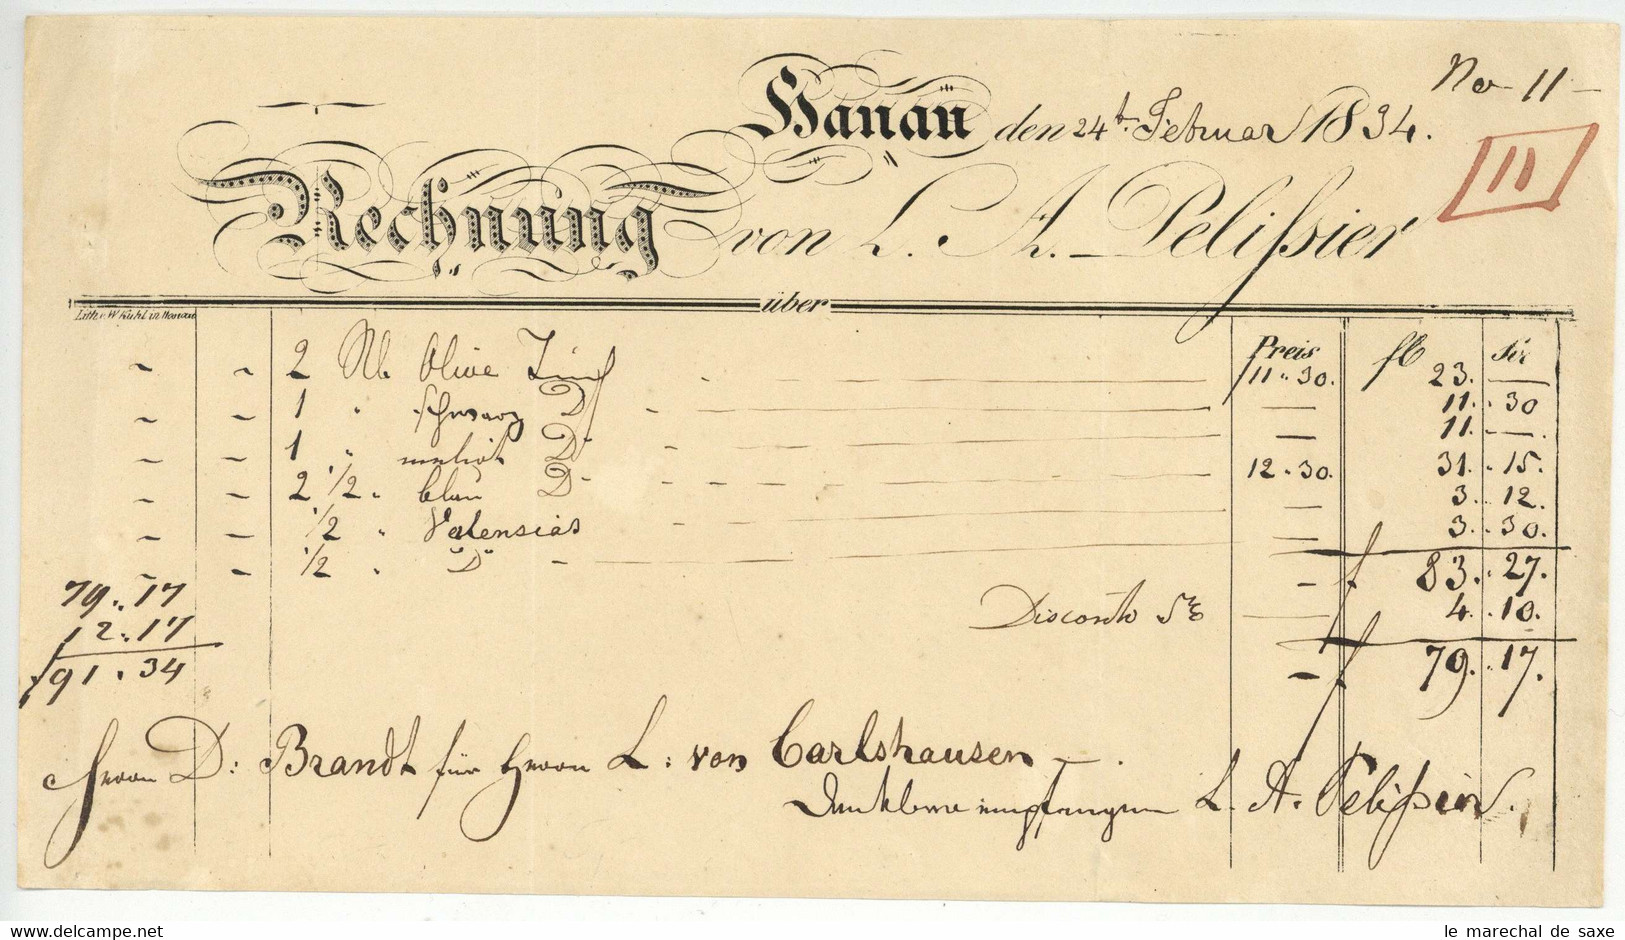 No 11
Hanau den 24t. Februar 1834.
11
Rechnung von L. A. Pelißier
über
Lith. v. W. Kuhl in Hanau
Preis fl Kr
2 Olive 11 " 30. 23. —
1 " schwarz D — 11. " 30
1 " melirt D — 11. " —.
2 1/2 " blau D 12 " 30. 31. " 15.
1/2 " Valensias — 3. " 12
1/2 " "D" — 3. " 30.
79 " 17 f 83. " 27.
12 " 17 Disconto 5% — 4. " 10.
f 91 " 34 f 79. " 17.
Herrn D: Brandt für Herrn L: von Carlshausen
Dankbar empfangen L. A. Pelißier.
le marechal de saxe